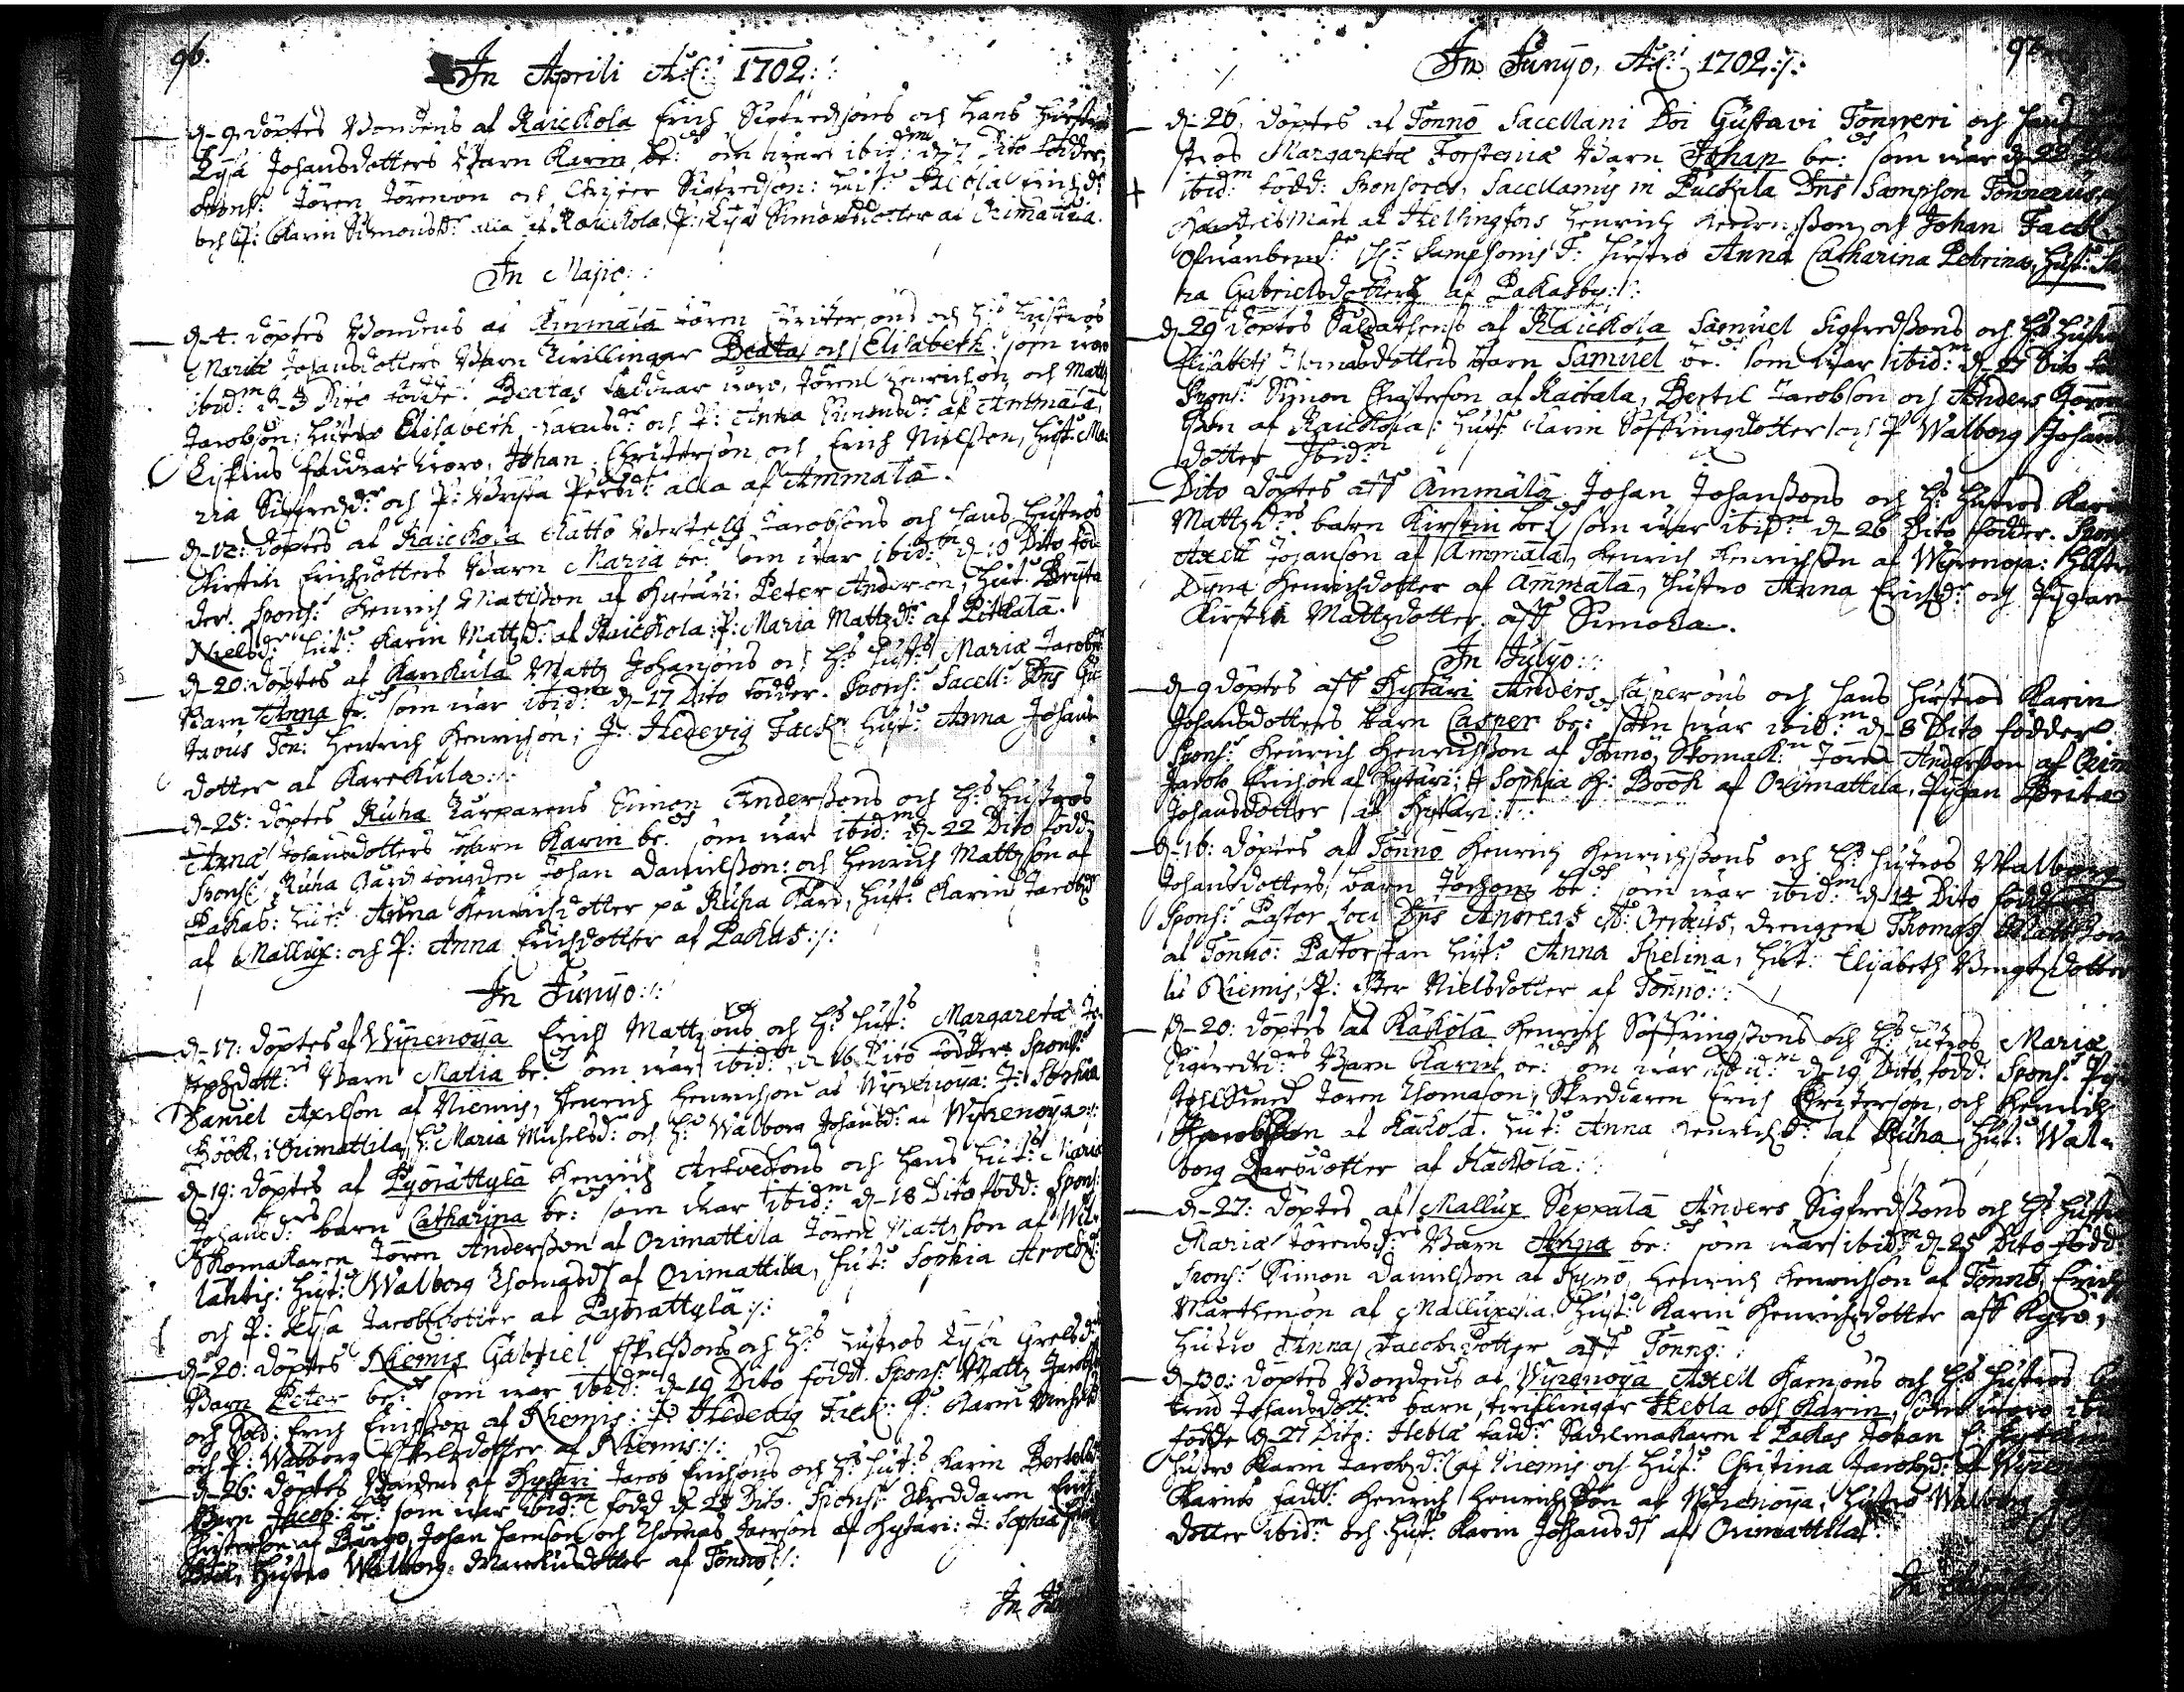 96.
In Aprili A:C: 1702:
d. 9. döptes Bondens af Raickola Erich Sigfredsons och hans hustros
Lysa Johansdotters Barn Karin be:d som war ibid:m d. 7 Dito födder,
Spons: Jören Jörenson och Christer Sigfredson: Hust:
och P: Karin Simonsd:r alla af Raickola, P: Lysa Simonsdotter af Orimattila.
In Majio:
d. 4. döptes Bondens af Ammala Jören Christersons och H:s Hustros
Maria Johansdotters Barn Twillingar Beata och Elisabeth som woro
ibid:m d. 3 Dito födde. Beatas faddrar woro, Jören Henrichson och Matts
Jacobson; Hustro Elisabeth Jacobsd:r och P: Anna Simonsd:r af Ammala,
Liskens faddrar woro, Johan Christerson och Erich Nielsson, Hust: Ma:
ria Sigfredzd:r och P: Brijta Persd:r alla af Ammala.
d. 12: döptes af Raickola Lätto Bertells Jacobsons och hans Hustros
Kirstin Erichsdotters Barn Maria be:d som war ibid:m d. 10 Dito föd-
der. Spons: Henrich Mattsson af Hytäri: Peter Anderson, Hust: Brijta
Nielsd:r Hust: Karin Mattzd:r af Raickola: P: Maria Mattzd:r af Pitkala.
d. 20: döptes af Karekula Matts Johansons och H:s Hust:s Maria Jacobsd:
Barn Anna be:d som war ibid:m d. 17 Dito födder. Spons: Sacell: Dns Gu-
stavus Ton: Henrich Henrichson; J: Hedevig Fack: Hust: Anna Johans-
dotter af Karekula:
d. 25: döptes Ruha Torparens Simon Anderssons och H:s Hustros
Anna Johansdotters Barn Karin be:d som war ibid:m d. 22 Dito född:
Spons: Ruha Gårds fougden Johan Danielsson: och Henrich Mattzson af
Pakas: Hust: Anna Henrichsdotter på Ruha Gård, Hust: Karin Jacobsd:r
af Mallux: och P: Anna Erichsdotter af Pakas:
In Junyo:
d. 17: döptes af Wijrenoija Erich Mattzsons och H:s Hust:s Margareta Jo-
sephzdott:s Barn Maria be:d som war ibid:m d. 16 Dito födder. Spons:
Daniel Axelson af Niemis, Henrich Henrichson af Wijrenoija: J: Sophia
Böök, i Orimattila, H: Maria Michelsd: och H: Walborg Johansd: af Wijrenoija:
d. 19: döptes af Pyörättylä Henrich Arfvedsons och hans Hust:s Maria
Johansd:rs barn Catharina be:d som war ibid:m d. 18 Dito född: Spons:
Skomakaren Jören Andersson af Orimattila Jören Mattzson af Wil-
lähtis: Hust: Walborg Thomasd: af Orimattila, Hust: Sophia Arvedzd:
och P: Lysa Jacobsdotter af Pyörattylä:
d. 20: döptes Niemis Gabriel Eskelssons och H:s Hustros Lysa Grelsd:
Barn Peter be:d som war ibid:m d. 19 Dito född. Spons: Matts Jacobs
och Sold: Erich Erichsson af Niemis: J: Hedevig Fack: P: Karin Michelsd
och P: Walborg Eskelsdotter af Niemis:
d. 26: döptes Bondens af Hytäri Jacob Erichsons och H:s Hust:s Karin Bertelsd:
Barn Jacob: be:d som war ibid:m född d. 25 Dito. Spons: Skreddaren Erich
Christerson af Borgo, Johan Hanson och Thomas af Hytäri: J: Sophia
Böök, Hustro Walborg Marcusdotter af Tönnö:
In
In Junyo, A:C: 1702:
d: 26: döptes af Tönnö Sacellani Doi Gustavi Tönneri och hans
stros Margareta Forstenia Barn Johan be:d som war d. 22
ibid:m född: Sponsores, Sacellanus in Puckila Dns Sampson Tönnerus,
Handelsman af Hellingfors Henrich och Johan Fack
Ofwanbem:d H:r Sampsonis F: Hustro Anna Catharina Petrina, Hust: Sa
ra Gabrielsdotter af Pakasby:
d. 29 döptes Saldathens af Raickola Samuel Sigfredssons och H:s Hustros
Elisabeth Thomasdotters Barn Samuel be:d som war ibid:m d. 27 Dito
Spons: Symon Christerson af Raickola, Bertil Jacobson och Anders Jören
sson af Raickola: Hust: Karin Söffringdotter och P Walborg Johans
dotter Ibid:m
Dito döptes aff Ammälä Johan Johanssons och H:s Hustros Karin
Mattzd:rs barn Kirstin be:d som war ibid:m d. 26 Dito födder. Spons
Axell Johanson af Ammala, Henrich Henrichson af Wijrenoja: Hustro
Henrichsdotter af Ammala, Hustro Anna Erichsd:r och Pigan
Kirstin Mattzdotter aff Simola.
In Julyo:
d. 9 döptes aff Hytäri Anders Caspersons och hans hustros Karin
Johansdotters barn Casper be:d som war ibid:m d. 8 Dito födder.
Spons: Henrich Henrichsson af Tönnö, Skomak:n Jören Andersson af Orim
Jacob Erichson af Hytäri; H Sophia H: Böök af Orimattila, Pigan Brita
Johansdotter af Hytäri:
d. 16: döptes af Tönnö Henrich Henrichssons och H:s Hustros Walborg
Johansdotters, barn be:d som war ibid:m d. 14 Dito
Spons: Pastor Loci Dns Andreas A: Orenius, drengen Thomas Mattsson
af Tönnö: Pastorskan Hust: Anna Kielina, Hust: Elisabeth Bengtzdotter
Niemis, P: Nielsdotter af Tönnö:
d. 20: döptes af Käkölä Henrich Söffringssons och H:s Hustros Maria
Sigfredzd:rs Barn Karin be:d som war ibid:m d. 19 Dito, född: Spons:
Jören Thomason, Skreddaren Erich Christerson, och Henrich
Jacobsson af Käkölä. Hust: Anna Henrichzd:r af Ruha, Hust: Wal-
borg Larsdotter af Käkölä:
d. 27: döptes af Mallux Seppälä Anders Sigfredssons och H:s Hustros
Maria Jörensd:rs Barn Anna be:d som war ibid:m d. 25 Dito född:
Spons: Simon Danielsson af Kyrö, Henrich Henrichson af Tönnö, Erich
Marthenson af Malluxella. Hust: Karin Henrichsdotter aff Kyrö,
Hustro Anna Jacobsdotter aff Tönnö:
d. 30: döptes Bondens af Wijrenoija Axell Hansons och H:s Hustros
trud Johansdott:rs barn, twillingar Hebla och Karin, som woro
födde d. 27 Dito: Hebla fadd:r Sadelmakaren i Pakas Johan
Hustro Karin Jacobzd:r af Niemis och Hust: Christina Jacobzd: af Wijrenoija
Karins fadd: Henrich Henrichsson af Wijrenoija, Hustro Walborg
dotter ibid:m och Hust: Karin Johansd: af Orimattila: